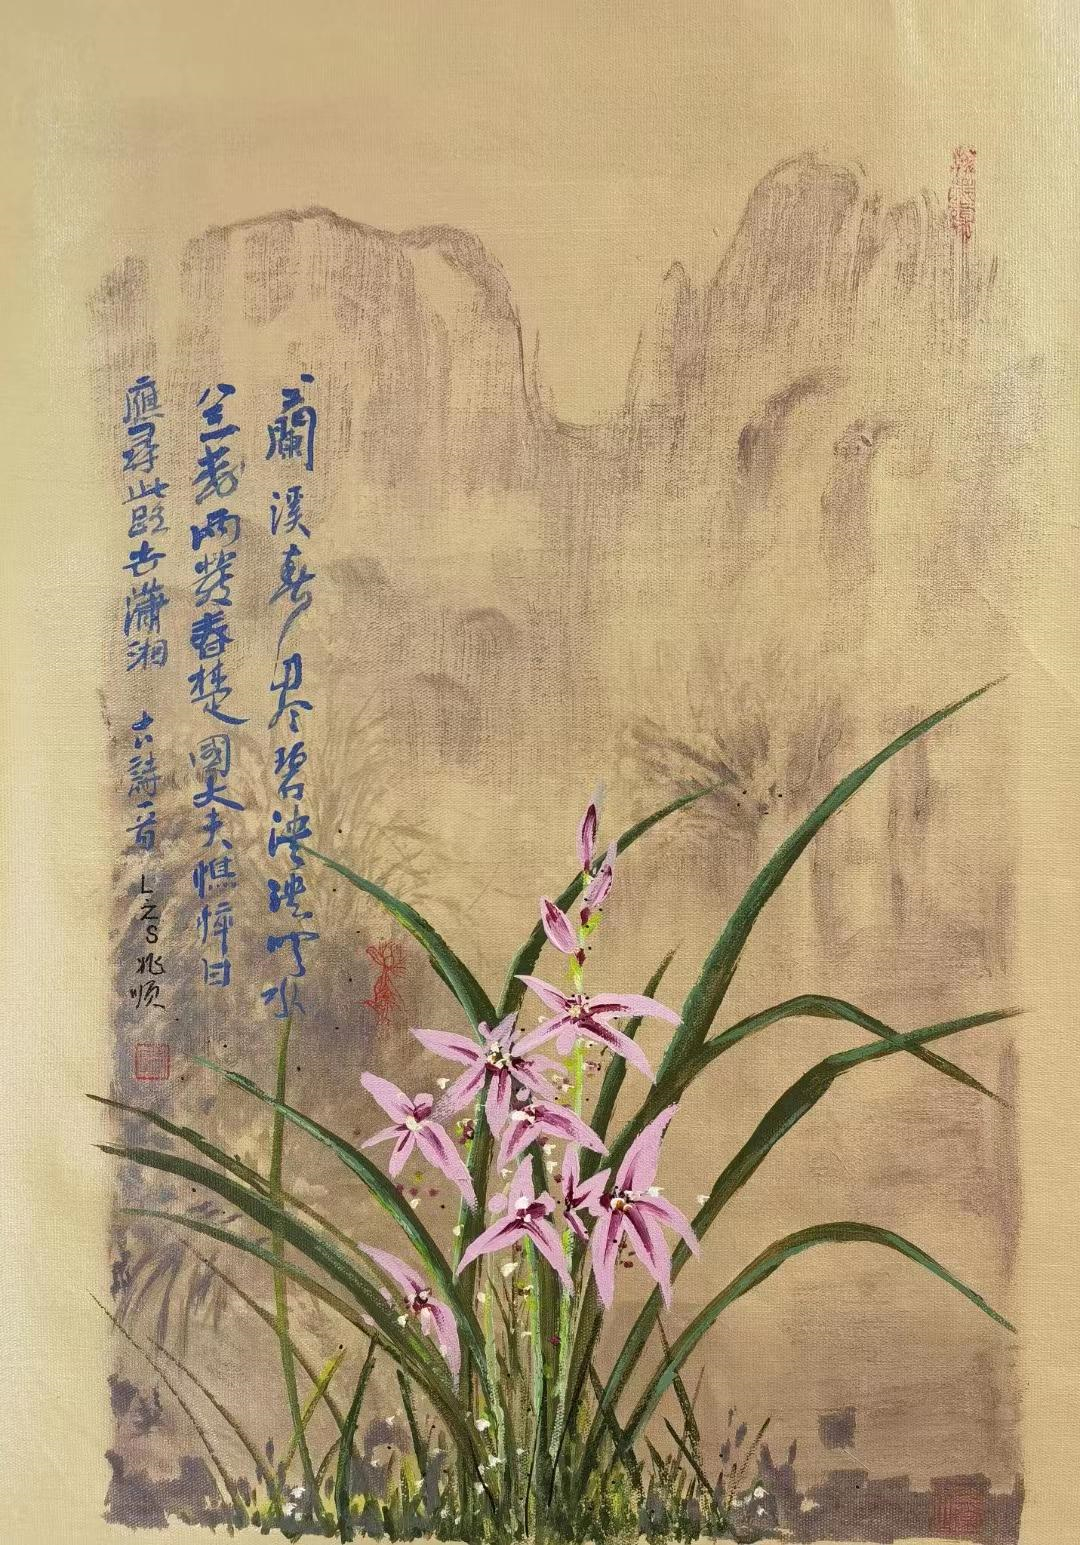 蘭溪春尽碧泱泱映水
兰花雨發香楚國大夫憔悴日
應尋此路去瀟湘 古詩一首 L之S 兆顺